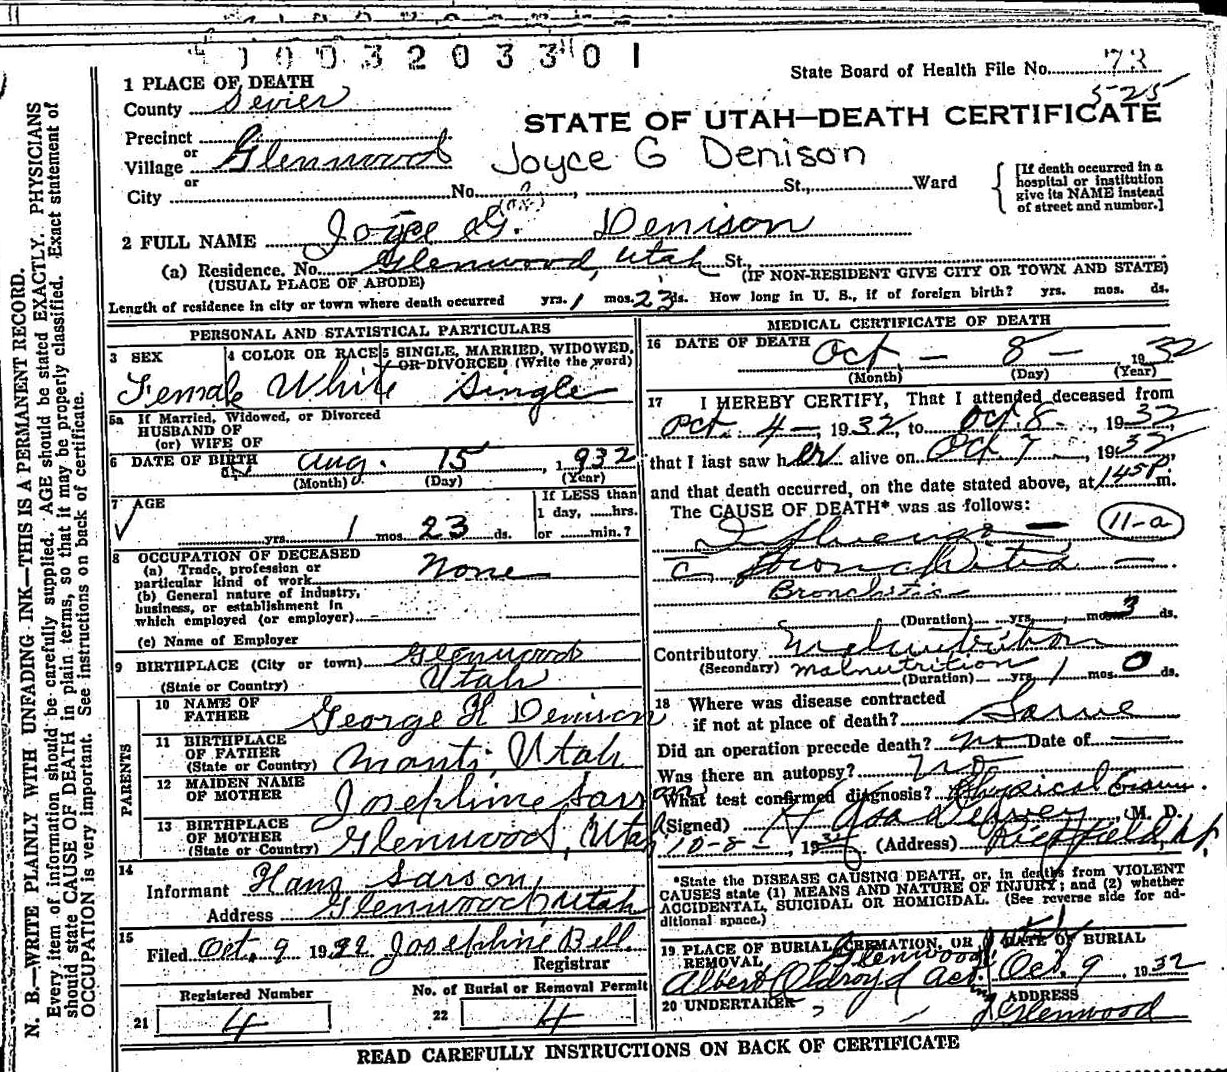 1 0 0 3 2 0 3 3 0 1
State Board of Health File No. 73
525
1 PLACE OF DEATH
County Sevier
STATE OF UTAH—DEATH CERTIFICATE
Precinct
or
Village Glenwood
Joyce G Denison
or
City No. St., Ward
[If death occurred in a hospital or institution give its NAME instead of street and number.]
2 FULL NAME Joyce G. Denison
(a) Residence. No. Glenwood, Utah St.,
(USUAL PLACE OF ABODE) (IF NON-RESIDENT GIVE CITY OR TOWN AND STATE)
Length of residence in city or town where death occurred yrs. 1 mos. 23 ds. How long in U. S., if of foreign birth? yrs. mos. ds.
PERSONAL AND STATISTICAL PARTICULARS
3 SEX 4 COLOR OR RACE 5 SINGLE, MARRIED, WIDOWED, OR DIVORCED (Write the word)
Female White Single
5a If Married, Widowed, or Divorced
HUSBAND OF
(or) WIFE OF
6 DATE OF BIRTH Aug. 15, 1932
(Month) (Day) (Year)
7 AGE If LESS than
1 day, hrs.
yrs. 1 mos. 23 ds. or min.?
8 OCCUPATION OF DECEASED
(a) Trade, profession or
particular kind of work None
(b) General nature of industry,
business, or establishment in
which employed (or employer)
(c) Name of Employer
9 BIRTHPLACE (City or town) Glenwood
(State or Country) Utah
PARENTS
10 NAME OF
FATHER George H Denison
11 BIRTHPLACE
OF FATHER
(State or Country) Manti, Utah
12 MAIDEN NAME
OF MOTHER Josephine Sarson
13 BIRTHPLACE
OF MOTHER
(State or Country) Glenwood, Utah
14
Informant Hans Sarson,
Address Glenwood, Utah
15
Filed Oct. 9 1932 Josephine Bell
Registrar
Registered Number No. of Burial or Removal Permit
21 4 22 4
MEDICAL CERTIFICATE OF DEATH
16 DATE OF DEATH Oct — 8 — 1932
(Month) (Day) (Year)
17 I HEREBY CERTIFY, That I attended deceased from
Oct. 4 — 1932, to Oct. 8 -, 1932,
that I last saw her alive on Oct 7, 1932,
and that death occurred, on the date stated above, at 145 P. m.
The CAUSE OF DEATH* was as follows:
11-a
Influenza —
c Bronchitis —
Bronchitis
(Duration) yrs. mos. 3 ds.
Contributory Malnutrition
(Secondary) Malnutrition
(Duration) yrs. 1 mos. 0 ds.
18 Where was disease contracted
if not at place of death? Same
Did an operation precede death? No Date of —
Was there an autopsy? No
What test confirmed diagnosis? Physical Exam.
(Signed) M. D.
10-8-, 19 (Address) Richfield, Ut.
*State the DISEASE CAUSING DEATH, or, in deaths from VIOLENT
CAUSES state (1) MEANS AND NATURE OF INJURY; and (2) whether
ACCIDENTAL, SUICIDAL OR HOMICIDAL. (See reverse side for ad-
ditional space.)
19 PLACE OF BURIAL, CREMATION, OR REMOVAL Glenwood Utah
DATE OF BURIAL Oct. 9, 1932
Albert Oldroyd Acting
20 UNDERTAKER ADDRESS
Glenwood
READ CAREFULLY INSTRUCTIONS ON BACK OF CERTIFICATE
N. B.—WRITE PLAINLY WITH UNFADING INK—THIS IS A PERMANENT RECORD.
Every item of information should be carefully supplied. AGE should be stated EXACTLY. PHYSICIANS
should state CAUSE OF DEATH in plain terms, so that it may be properly classified. Exact statement of
OCCUPATION is very important. See instructions on back of certificate.